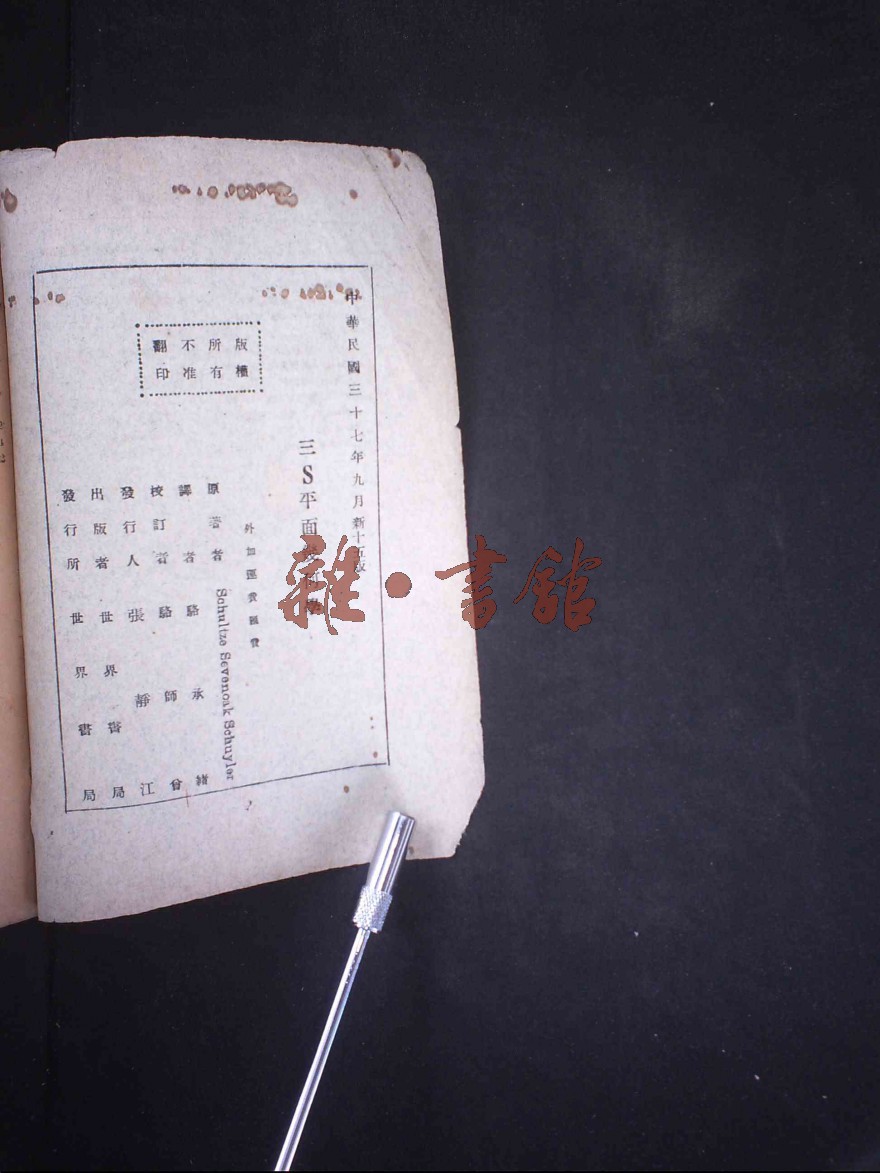 中華民國三十七年九月新十五版
三S平面幾何學
外加運費匯費
版權
所有
不准
翻印
原著者 Schultze Sevenoak Schuyler
譯者 駱承緒
校訂者 駱師曾
發行人 張靜江
出版者 世界書局
發行所 世界書局
雜·書館